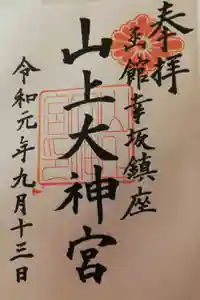 奉拝
函館幸坂鎮座
山上大神宮
令和元年九月十三日